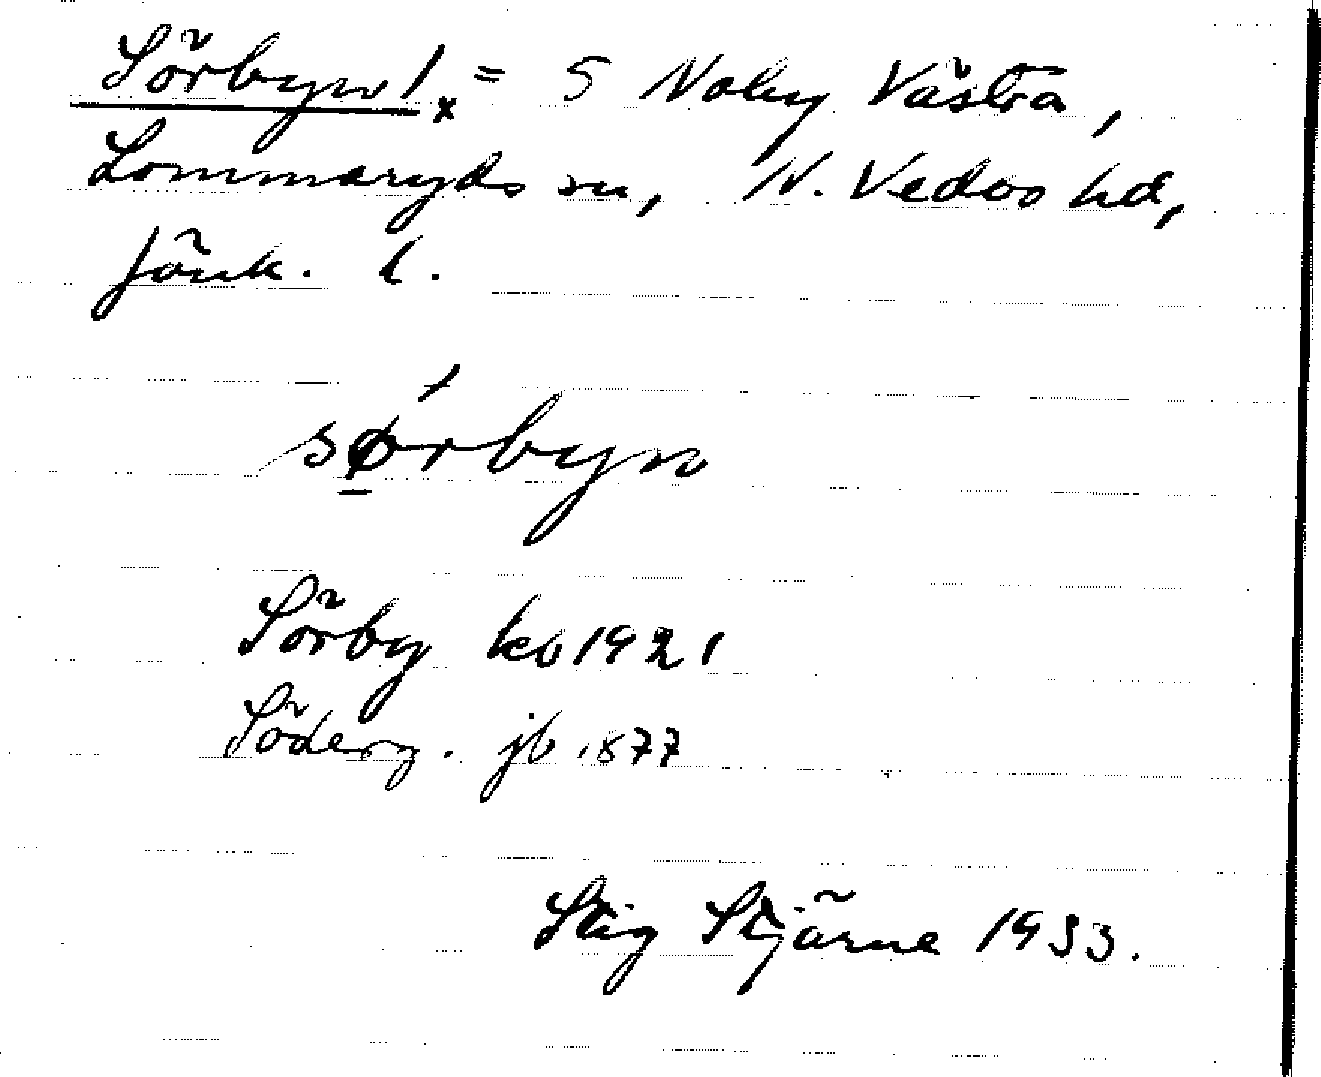 Sörbyn 1 x = S Noby Västra,
Lommaryds sn, N. Vedbo hd,
Jönk. l.
sørbyn
Sörby kb 1921
Söderg. jb 1877
Stig Stjärne 1933.